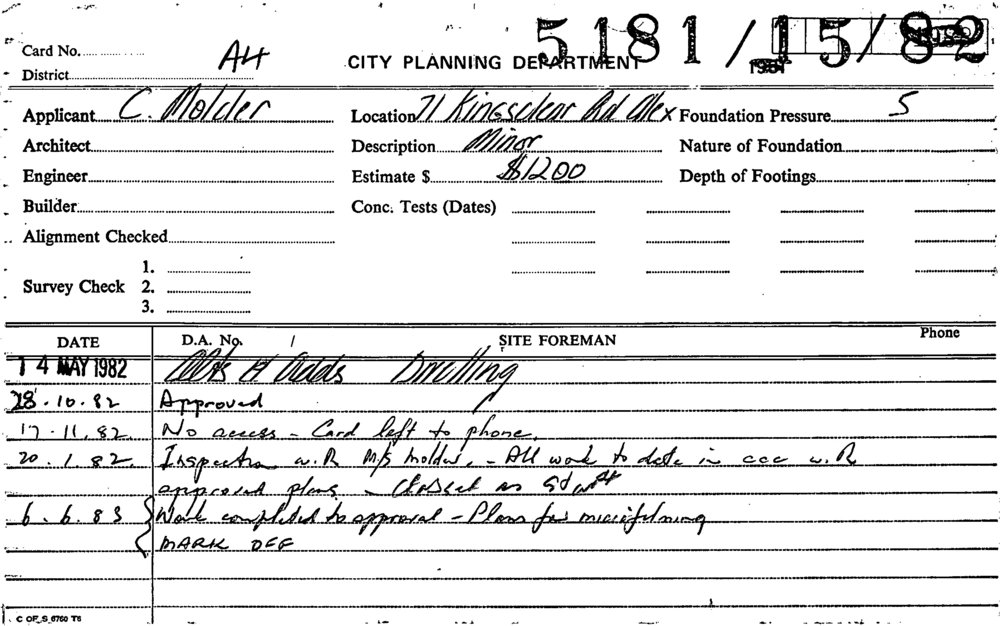 5181/15/82
Card No. A4
1981
CITY PLANNING DEPARTMENT
District
Applicant C. Molder Location 71 Kingsclear Rd Alex Foundation Pressure 5
Architect Description Minor Nature of Foundation
Engineer Estimate $ $1200 Depth of Footings
Builder Conc. Tests (Dates)
Alignment Checked
1.
Survey Check 2.
3.
DATE D.A. No. / SITE FOREMAN Phone
14 MAY 1982 Alts & Adds Dwelling
28.10.82 Approved
17.11.82. No access - Card left to phone.
20.1.82. Inspection w. R M/s Molder. - All work to date in acc w. R
approved plans -
6.6.83 Work completed to approval - Plans for microfilming
MARK OFF
C OF S 6760 T6